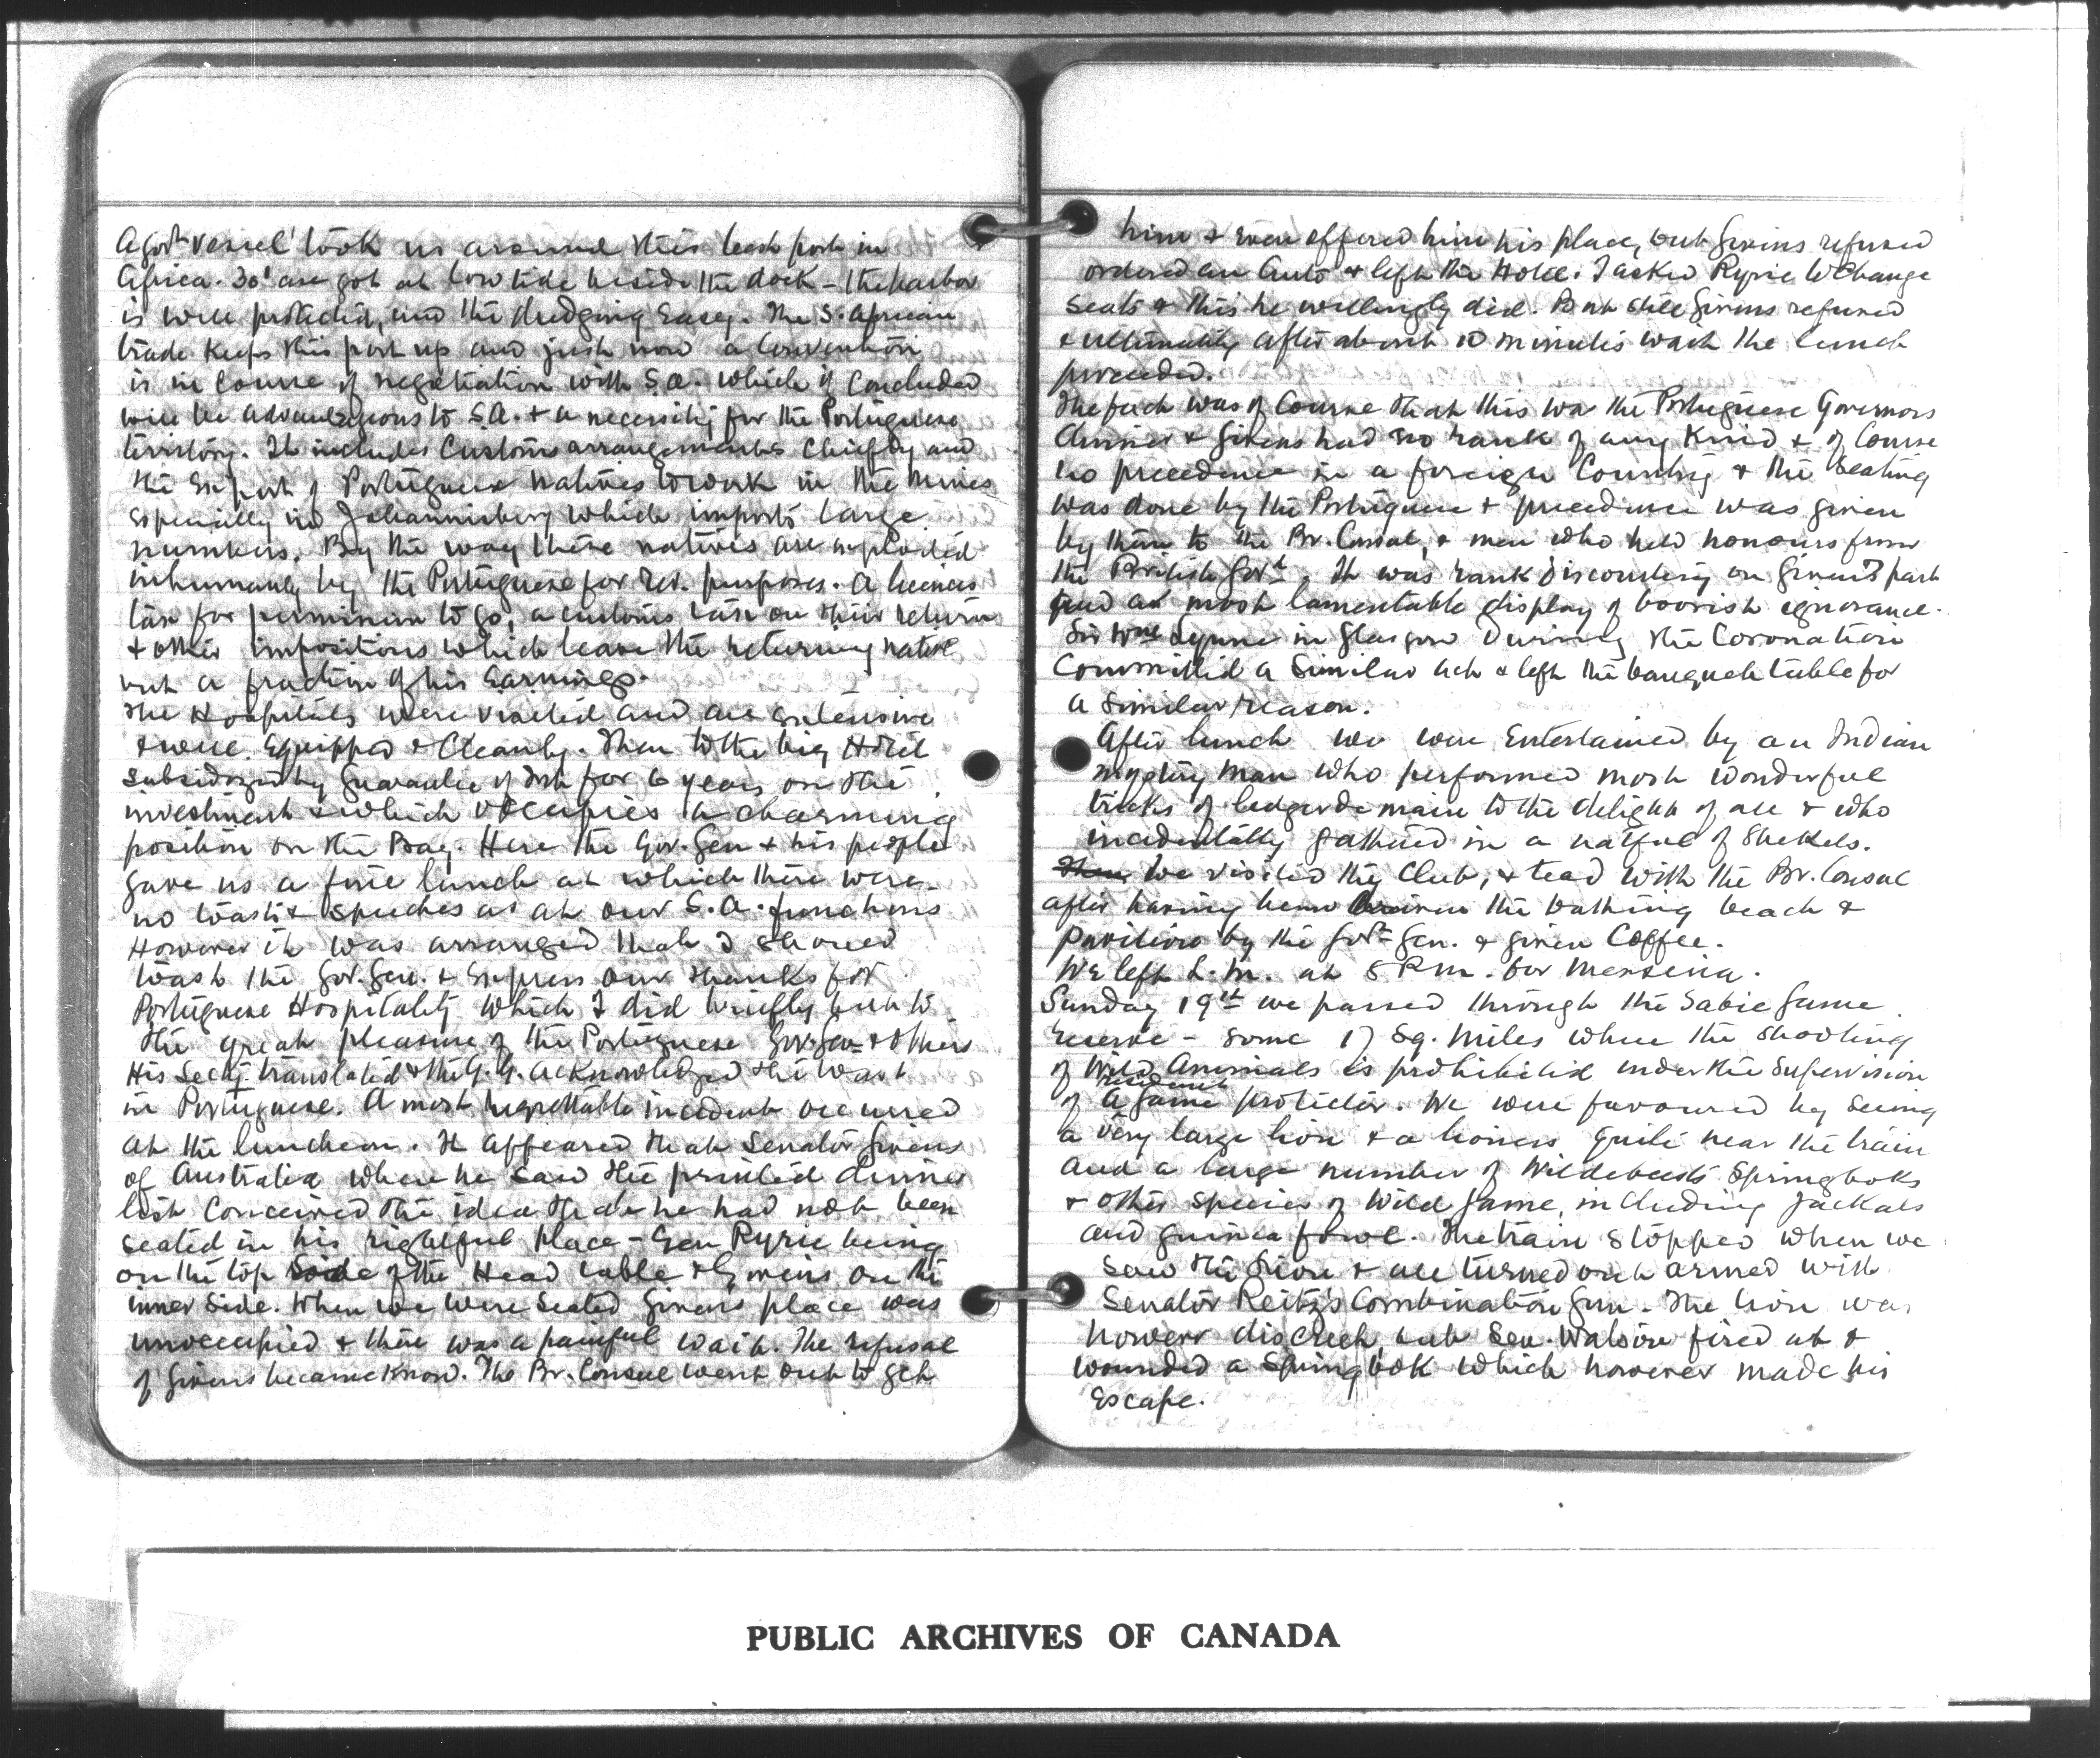 A govt vessel took us around this best port in
Africa. 30' are got at low tide beside the dock - the harbor
is well protected, and the dredging easy. The S. African
trade keeps this port up and just now a Convention
is in course of negotiation with S.A. which if concluded
will be advantageous to S.A. & a necessity for the Portuguese
territory. It includes Customs arrangements chiefly and
the export of Portuguese natives to work in the mines
especially in Johannisberg which imports large
numbers. By the way these natives are exploited
inhumanly by the Portuguese for rev. purposes. A licence
tax for permission to go, a customs tax on their return
& other impositions which leave the returning native
but a fraction of his earnings.
The Hospitals were visited and are extensive
& well equipped & cleanly. Then to the big Hotel
subsidized by guarantee of for 6 years on the
investment & which occupies a charming
position on the Bay. Here the Gov. Gen & his people
gave us a fine lunch at which there were
no toasts & speeches as at our S.A. functions
However it was arranged that I should
toast the Gov. Gen. & express our thanks for
Portuguese Hospitality which I did briefly but to
the great pleasure of the Portuguese Gov. Gen & others
His Secty translated & the G.G. acknowledged the toast
in Portuguese. A most regrettable incident occurred
at the luncheon. It appeared that Senator Givens
of Australia when he saw the printed dinner
list conceived the idea that he had not been
seated in his rightful place - Gen Ryrie being
on the top side of the Head table & Givens on the
inner side. When we were seated Givens place was
unoccupied & there was a painful wait. The refusal
of Givens became know. The Br. Consul went out to get
him & even offered him his place, but Givens refused
ordered an Auto & left the Hotel. I asked Ryrie to change
seats & this he willingly did. But still Givens refused
& ultimately after about 10 minutes wait the lunch
proceeded.
The fact was of course that this was the Portuguese Governors
dinner & Givens had no rank of any kind & of course
no precedence in a foreign Country & the seating
was done by the Portuguese & precedence was given
by them to the Br. Consul, & men who held honours from
the British Govt. It was rank discourtesy on Givens part
and a most lamentable display of boorish ignorance.
Sir Wm Lynne in Glasgow during the Coronation
committed a similar act & left the banquet table for
a similar reason.
After lunch we were entertained by an Indian
mystery man who performed most wonderful
tricks of legerdemain to the delight of all & who
incidentally gathered in a hatful of Shekels.
Then we visited the Club, & tead with the Br. Consul
after having been the bathing beach &
pavilion by the Govr Gen. & given Coffee.
We left L.M. at 8 P.m. for Messina.
Sunday 19th we passed through the Sabie Game
reserve - some 17 Sq. miles where the shooting
of Wild Animals is prohibited under the supervision
of a resident Game protector. We were favoured by seeing
a very large lion & a lioness quite near the train
and a large number of Wildebeests Springboks
& other species of wild game, including Jackals
and guinea fowl. The train stopped when we
saw the Lion & all turned out armed with
Senator Reitz's Combination Gun. The lion was
however discreet, but Sen. Watson fired at &
wounded a Springbok which however made his
escape.
PUBLIC ARCHIVES OF CANADA